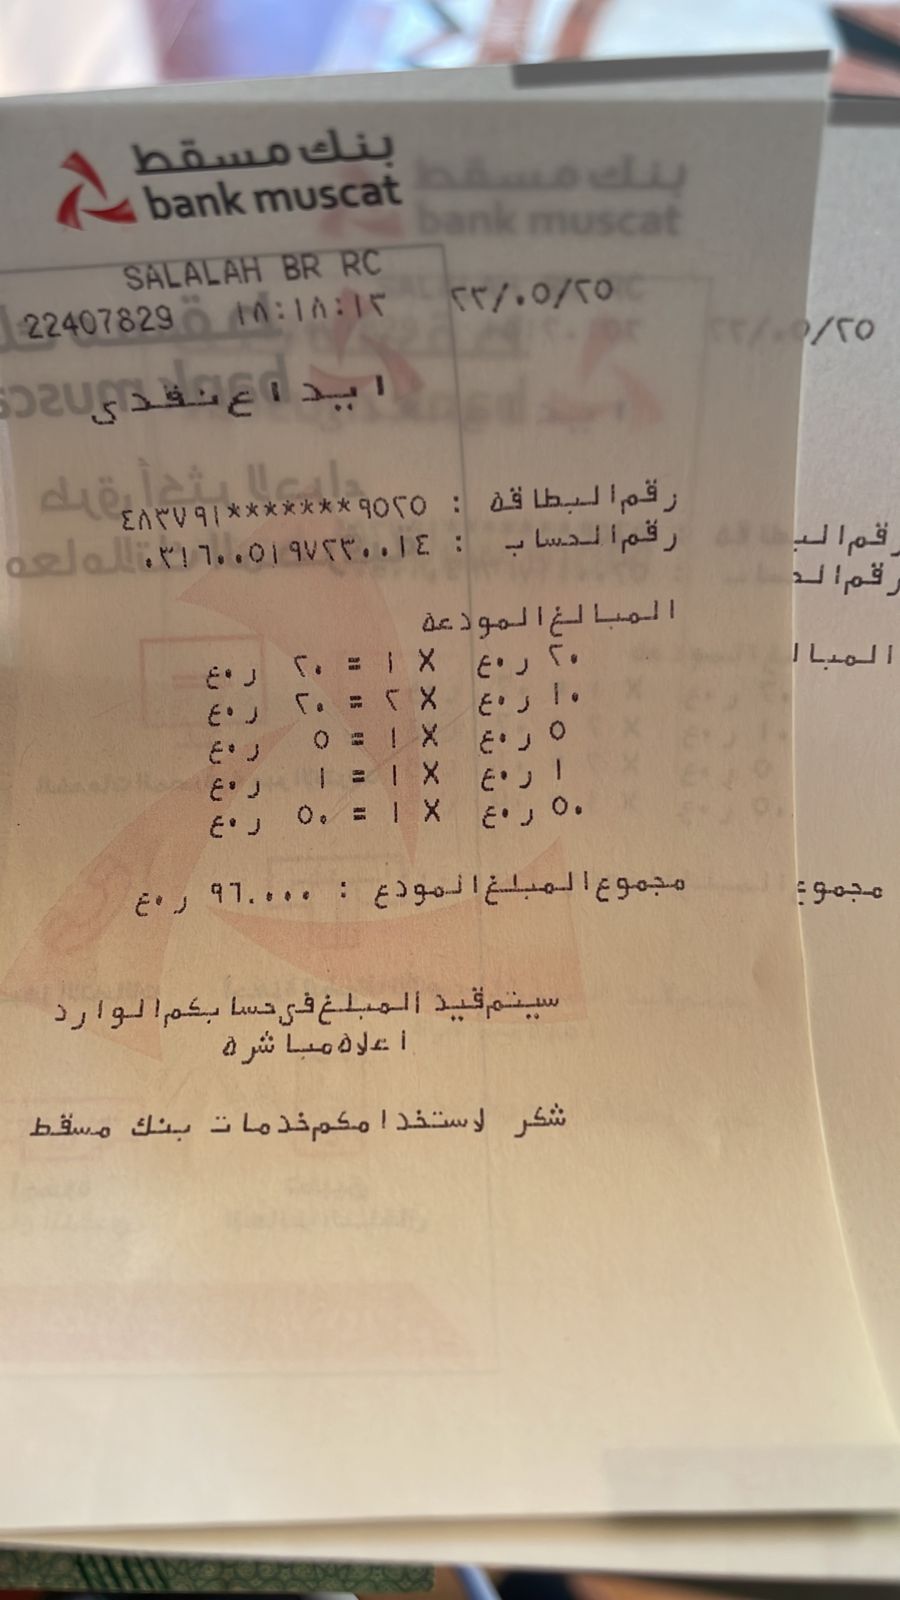 بنك مسقط
bank muscat
SALALAH BR RC
22407829 ١٨:١٨:١٢ ٢٢/٠٥/٢٥
ايداع نقدي
رقم البطاقة : ٤٨٣٧٩١*******٩٥٢٥
رقم الحساب : ٠٣١٦٠٠٥١٩٧٢٣٠٠١٤
المبالغ المودعة
٢٠ ر٠ع X ١ = ٢٠ ر٠ع
١٠ ر٠ع X ٢ = ٢٠ ر٠ع
٥ ر٠ع X ١ = ٥ ر٠ع
١ ر٠ع X ١ = ١ ر٠ع
٥٠ ر٠ع X ١ = ٥٠ ر٠ع
مجموع المبلغ المودع : ٩٦.٠٠٠ ر٠ع
سيتم قيد المبلغ في حسابكم الوارد
اعلاه مباشرة
شكر لاستخدامكم خدمات بنك مسقط